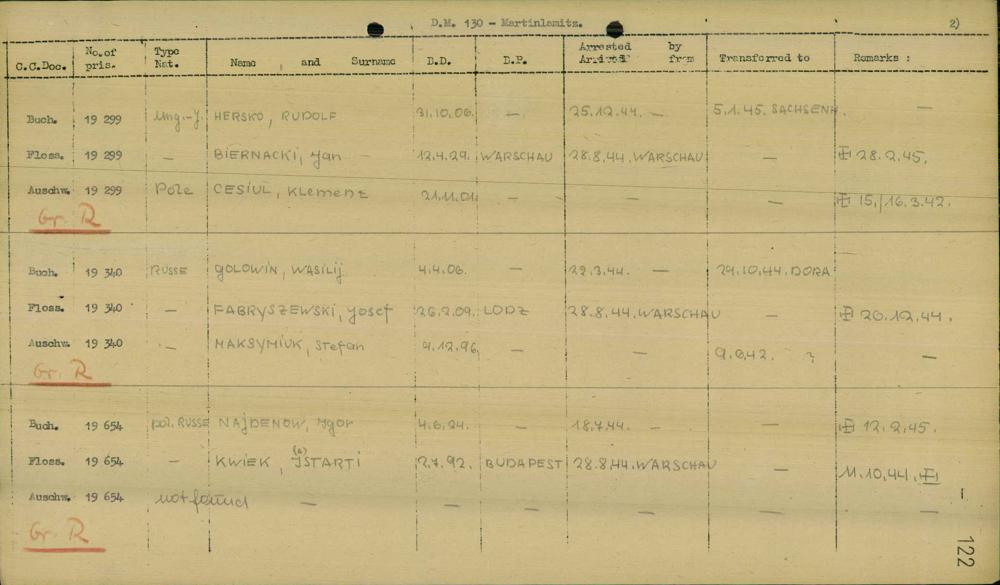 D.M. 130 - Martinlamitz. 2)
C.C.Doc. No. of pris. Type Nat. Name and Surname D.D. D.P. Arrested by Arrived from Transferred to Remarks :
Buch. 19 299 Ung.-J. HERSKO, RUDOLF 31.10.06. — 25.12.44. — 5.1.45. SACHSENH. —
Floss. 19 299 — BIERNACKI, Jan 12.4.29. WARSCHAU 28.8.44. WARSCHAU — 28.2.45.
Auschw. 19 299 Pole CESIUL, Klemenz 21.11.01. — — — 15./16.3.42.
Gr. R
Buch. 19 340 RUSSE GOLOWIN, WASILIJ 4.4.06. — 29.10.44. DORA
Floss. 19 340 — FABRYSZEWSKI, Josef 26.2.09. LODZ 28.8.44. WARSCHAU — 20.12.44.
Auschw. 19 340 — MAKSYMIUK, Stefan — — 9.6.42. ? —
Gr. R
Buch. 19 654 pol. RUSSE NAJDENOW, Jgor 4.6.24. — 18.7.44. — — 12.2.45.
Floss. 19 654 — KWIEK, JSTARTI (a) 2.7.92. BUDAPEST 28.8.44. WARSCHAU — 11.10.44.
Auschw. 19 654 not found — — — — — —
Gr. R
122